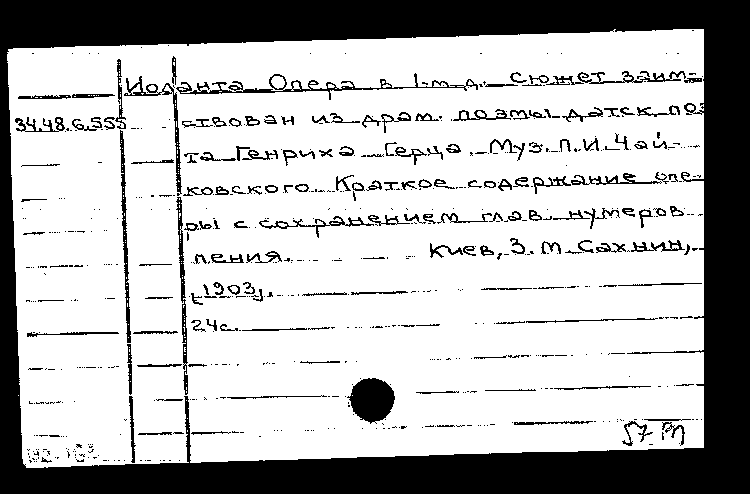 Иоланта Опера в 1-м д. Сюжет заим-
34.48.6.555 ствован из драм. поэмы датск. поэ
та Генриха Герца. Муз. П.И. Чай-
ковского. Краткое содержание опе-
ры с сохранением глав. нумеров
пения. Киев, З. М. Сахнин,
[1903].
24с.
57 РП